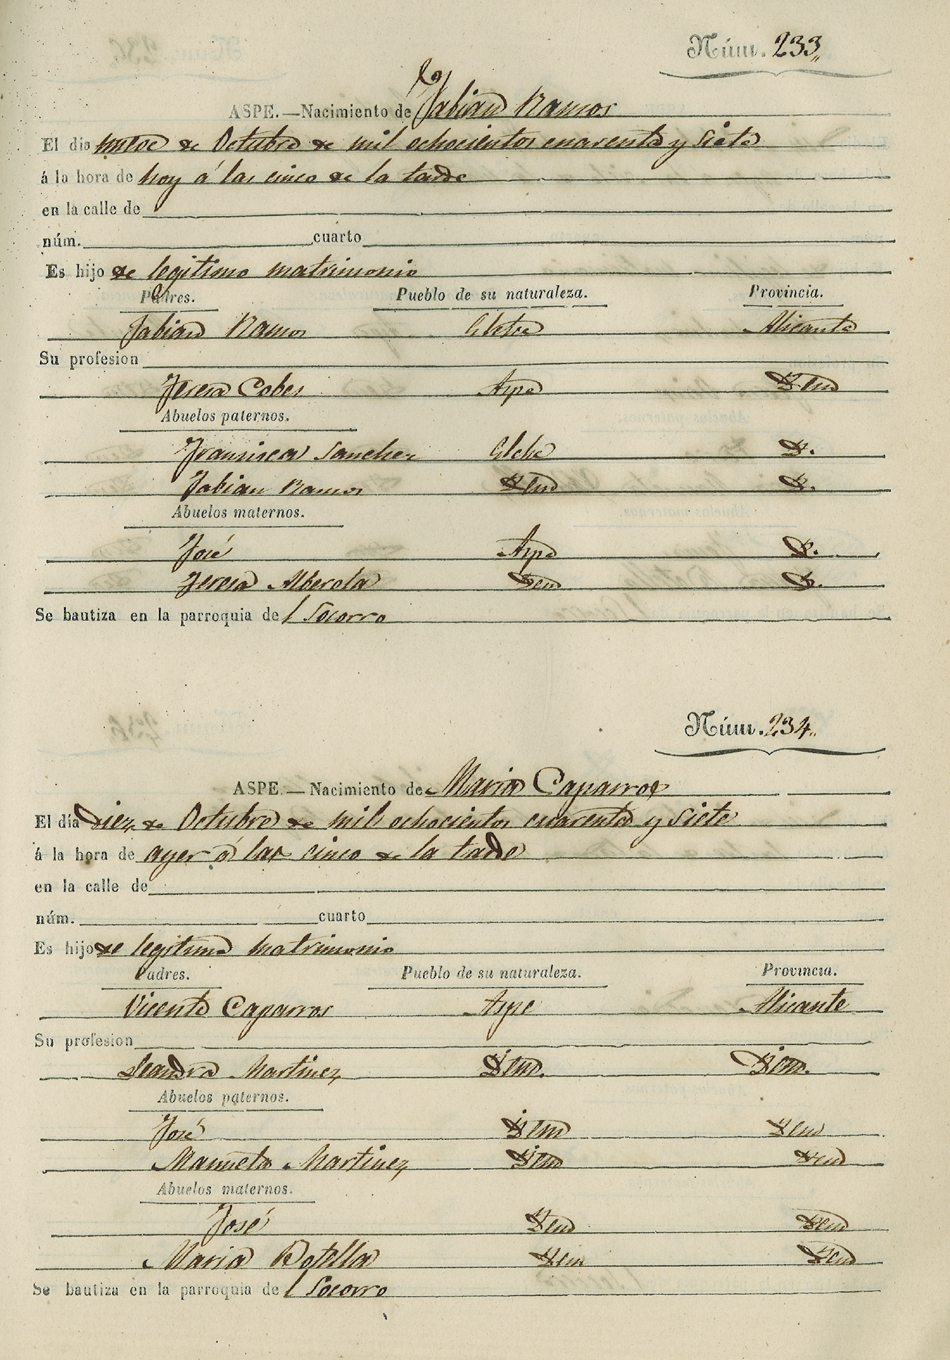 Núm. 233
ASPE.—Nacimiento de Fabian Ramos
El dia nueve de Octubre de mil ochocientos cuarenta y siete
á la hora de hoy á las cinco de la tarde
en la calle de
núm. cuarto
Es hijo de legitimo matrimonio
Padres. Pueblo de su naturaleza. Provincia.
Fabian Ramos Elche Alicante
Su profesion
Teresa Aspe Idem
Abuelos paternos.
Francisca Sanchez Elche Id.
Fabian Ramos Idem Id.
Abuelos maternos.
José Aspe Id.
Teresa Alberola Idem Id.
Se bautiza en la parroquia del Socorro
Núm. 234.
ASPE.—Nacimiento de Maria Caparros
El día Diez de Octubre de mil ochocientos cuarenta y siete
á la hora de ayer á las cinco de la tarde
en la calle de
núm. cuarto
Es hijo de legitimo matrimonio
Padres. Pueblo de su naturaleza. Provincia.
Vicente Caparros Aspe Alicante
Su profesion
Leandra Martinez Idem. Idem.
Abuelos paternos.
José Idem Idem
Manuela Martinez Idem Idem
Abuelos maternos.
José Idem Idem
Maria Botella Idem Idem
Se bautiza en la parroquia del Socorro